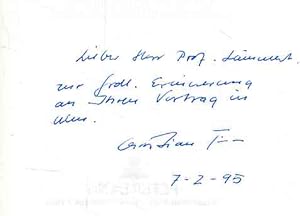 Lieber Herr Prof. Lämmert,
zur frdl. Erinnerung
an Ihren Vortrag in
Ulm.
Christian
7-2-95